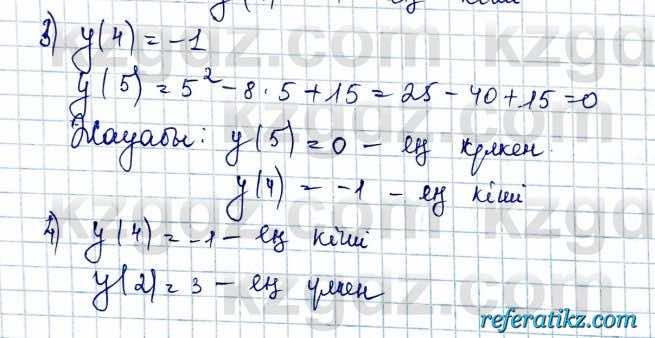 3) y(4) = -1
y(5) = 5² - 8·5 + 15 = 25 - 40 + 15 = 0
Жауабы: y(5) = 0 - ең үлкен.
y(4) = -1 - ең кіші
4) y(4) = -1 - ең кіші
y(2) = 3 - ең үлкен
referatikz.com